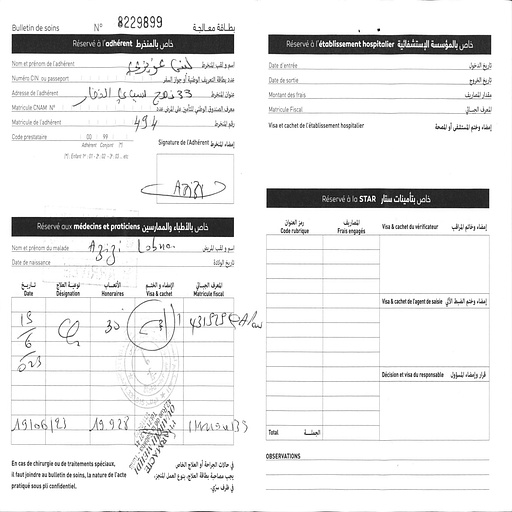 Bulletin de soins N° 8229899 بطاقة معالجة
Réservé à l'adhérent خاص بالمنخرط
Nom et prénom de l'adhérent اسم و لقب المنخرط
Numéro CIN ou passeport عدد بطاقة التعريف الوطنية أو جواز السفر
Adresse de l'adhérent 33 نهج عنوان المنخرط
Matricule CNAM N° معرف الصندوق الوطني للتأمين على المرض عدد
Matricule de l'adhérent 494 رقم المنخرط
Code prestataire 00 99
Adhérent Conjoint (*)
(*), Enfant 1er : 01 - 2è : 02 - 3è : 03 ... etc
Signature de l'Adhérent إمضاء المنخرط
Azizi
Réservé aux médecins et praticiens خاص بالأطباء والممارسين
Nom et prénom du malade Azizi Lobna اسم و لقب المريض
Date de naissance تاريخ الولادة
تاريخ نوعية العلاج الأتعاب الإمضاء و الختم المعرف الجبائي
Date Désignation Honoraires Visa & cachet Matricule fiscal
19/6/023 30
19/06/23 19.923
En cas de chirurgie ou de traitements spéciaux,
il faut joindre au bulletin de soins, la nature de l'acte
pratiqué sous pli confidentiel.
في حالات الجراحة أو العلاج الخاص
يجب مصاحبة بطاقة العلاج، بنوع العمل المنجز،
في ظرف سري.
Réservé à l'établissement hospitalier خاص بالمؤسسة الإستشفائية
Date d'entrée تاريخ الدخول
Date de sortie تاريخ الخروج
Montant des frais مقدار المصاريف
Matricule Fiscal المعرف الجبائي
Visa et cachet de l'établissement hospitalier إمضاء وختم المستشفى أو المصحة
Réservé à la STAR خاص بتأمينات ستار
رمز العنوان المصاريف
Code rubrique Frais engagés
Visa & cachet du vérificateur إمضاء وخاتم المراقب
Visa & cachet de l'agent de saisie إمضاء وختم الضبط الآلي
Décision et visa du responsable قرار وإمضاء المسؤول
Total الجملة
OBSERVATIONS